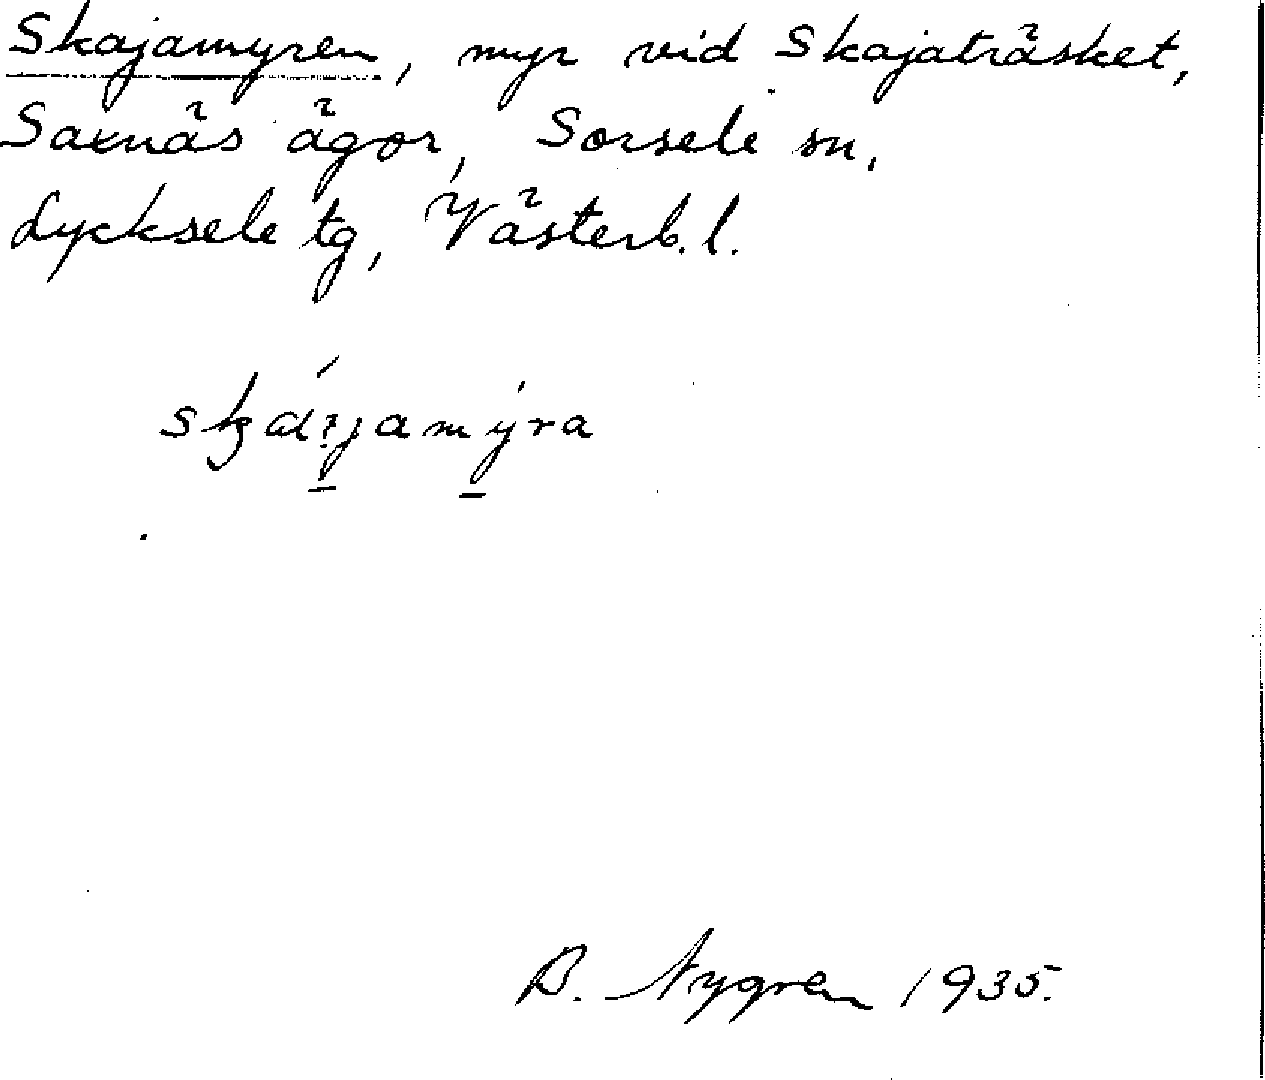 Skajamyren, myr vid Skajaträsket,
Saxnäs ägor, Sorsele sn,
Lycksele tg, Västerb. l.
B. Nygren 1935.